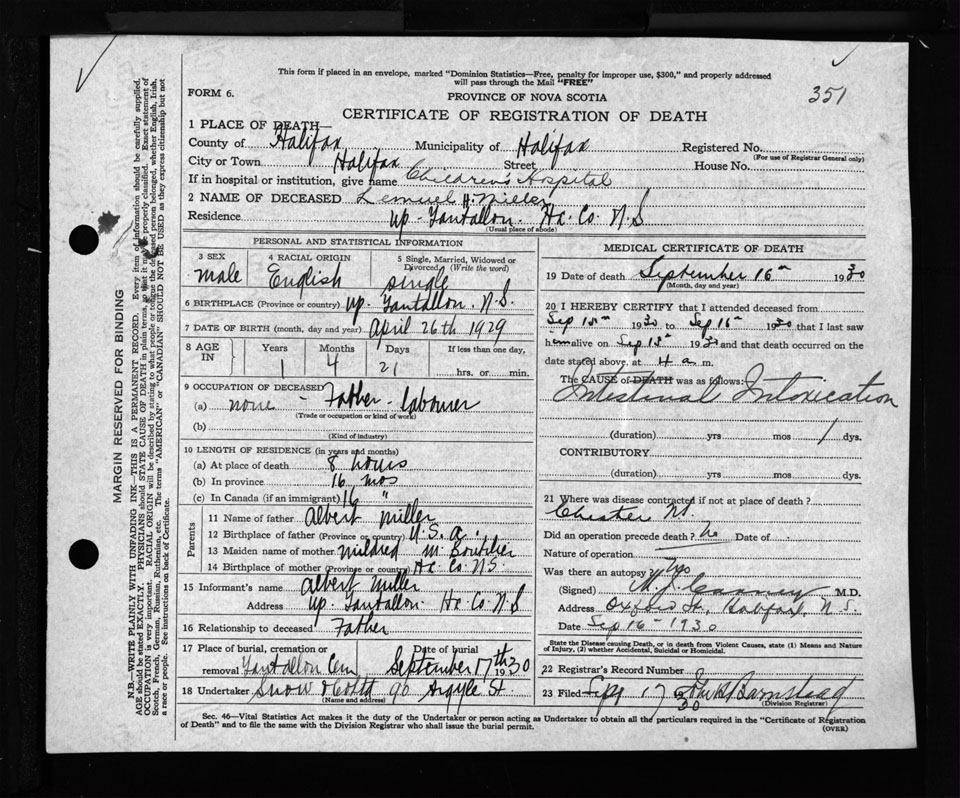 This form if placed in an envelope, marked "Dominion Statistics—Free, penalty for improper use, $300," and properly addressed
will pass through the Mail "FREE"
FORM 6.
PROVINCE OF NOVA SCOTIA
351
CERTIFICATE OF REGISTRATION OF DEATH
1 PLACE OF DEATH—
County of Halifax Municipality of Halifax Registered No.
(For use of Registrar General only)
City or Town Halifax Street House No.
If in hospital or institution, give name Children's Hospital
2 NAME OF DECEASED Lemuel H. Miller
Residence Up. Tantallon. Hx. Co. N.S
(Usual place of abode)
PERSONAL AND STATISTICAL INFORMATION
3 SEX 4 RACIAL ORIGIN 5 Single, Married, Widowed or
Divorced (Write the word)
male English single
6 BIRTHPLACE (Province or country) Up. Tantallon. N.S.
7 DATE OF BIRTH (month, day and year) April 26th 1929
8 AGE IN Years Months Days If less than one day,
1 4 21 hrs. or min.
9 OCCUPATION OF DECEASED
(a) none - Father - labourer
(Trade or occupation or kind of work)
(b)
(Kind of industry)
10 LENGTH OF RESIDENCE (in years and months)
(a) At place of death 8 hours
(b) In province 16 mos
(c) In Canada (if an immigrant) 16 "
Parents
11 Name of father Albert Miller
12 Birthplace of father (Province or country) U.S.A.
13 Maiden name of mother Mildred M. Boutilier
14 Birthplace of mother (Province or country) Hx. Co. N.S.
15 Informant's name Albert Miller
Address Up. Tantallon. Hx. Co. N.S
16 Relationship to deceased Father
17 Place of burial, cremation or Date of burial
removal Tantallon Cem September 17th 1930
18 Undertaker Snow & Co Ltd 90 Argyle St
(Name and address)
MEDICAL CERTIFICATE OF DEATH
19 Date of death September 16th 1930
(Month, day and year)
20 I HEREBY CERTIFY that I attended deceased from
Sep 15th 1930 to Sep 16th 1930 that I last saw
him alive on Sep 15th 1930 and that death occurred on the
date stated above, at 4 a m.
The CAUSE of DEATH was as follows:
Intestinal Intoxication
(duration) yrs mos 1 dys.
CONTRIBUTORY
(duration) yrs. mos. dys.
21 Where was disease contracted if not at place of death?
Chester NS.
Did an operation precede death? No Date of
Nature of operation
Was there an autopsy?
(Signed) M.D.
Address Oxford St., Halifax, N.S.
Date Sep 16 - 1930
State the Disease causing Death, or in deaths from Violent Causes, state (1) Means and Nature
of Injury, (2) whether Accidental, Suicidal or Homicidal.
22 Registrar's Record Number
23 Filed Sept 17 30 Barnstead
(Division Registrar)
Sec. 46—Vital Statistics Act makes it the duty of the Undertaker or person acting as Undertaker to obtain all the particulars required in the "Certificate of Registration
of Death" and to file the same with the Division Registrar who shall issue the burial permit.
(OVER)
MARGIN RESERVED FOR BINDING
N.B.—WRITE PLAINLY WITH UNFADING INK—THIS IS A PERMANENT RECORD. Every item of information should be carefully supplied.
AGE should be stated EXACTLY. PHYSICIANS should STATE CAUSE OF DEATH in plain terms, so that it may be properly classified. Exact statement of
OCCUPATION is very important. RACIAL ORIGIN will be described by stating to what people or tongue the deceased person belonged, whether English, Irish,
Scotch, French, German, Russian, Ruthenian, etc. The terms "AMERICAN" or "CANADIAN" SHOULD NOT BE USED as they express citizenship but not
a race or people. See instructions on back of Certificate.